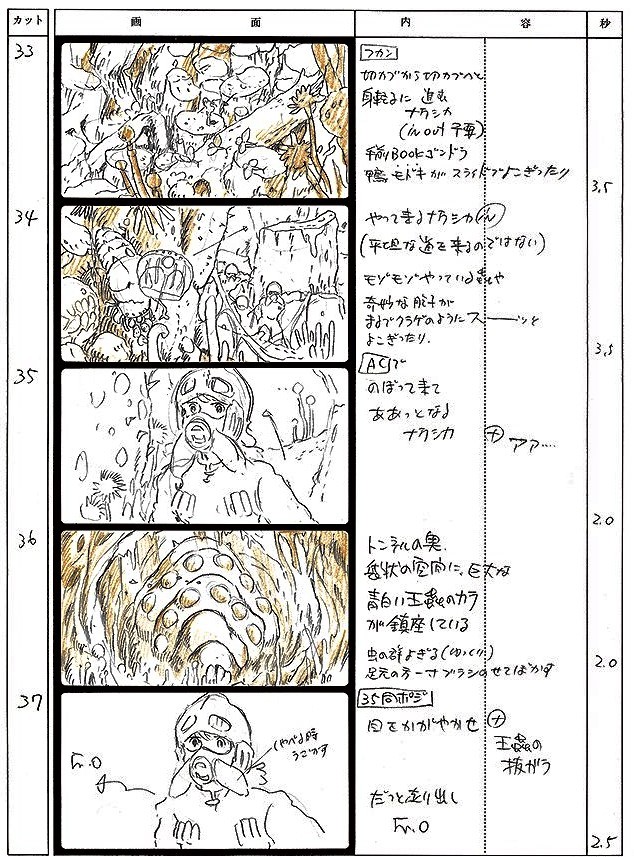 カット　画　面　内　容　秒
33
フカン
切カブから切カブへと
身軽に 進む
ナウシカ
(in out 予要)
手前BOOKゴンドラ
鴨モドキが スライドでよこぎったり
3.5
34
やって来るナウシカ(ル)
(平坦な道を来るのではない)
モゾモゾやっている蟲や
奇妙な胞子が
まるでクラゲのようにスーーッと
よこぎったり.
3.5
35
ACで
のぼって来て
ああっとなる
ナウシカ
アア‥‥
2.0
36
トンネルの奥.
の空間に、巨大な
青白い王蟲のカラ
が鎮座している
虫の群よぎる(ゆっくり)
足元の ブラシのせてぼかす
2.0
37
35同ポジ
目をかがやかせ
王蟲の
抜ガラ
しゃべる時
うごかす
Fr.O
だっと走り出し
Fr.O
2.5